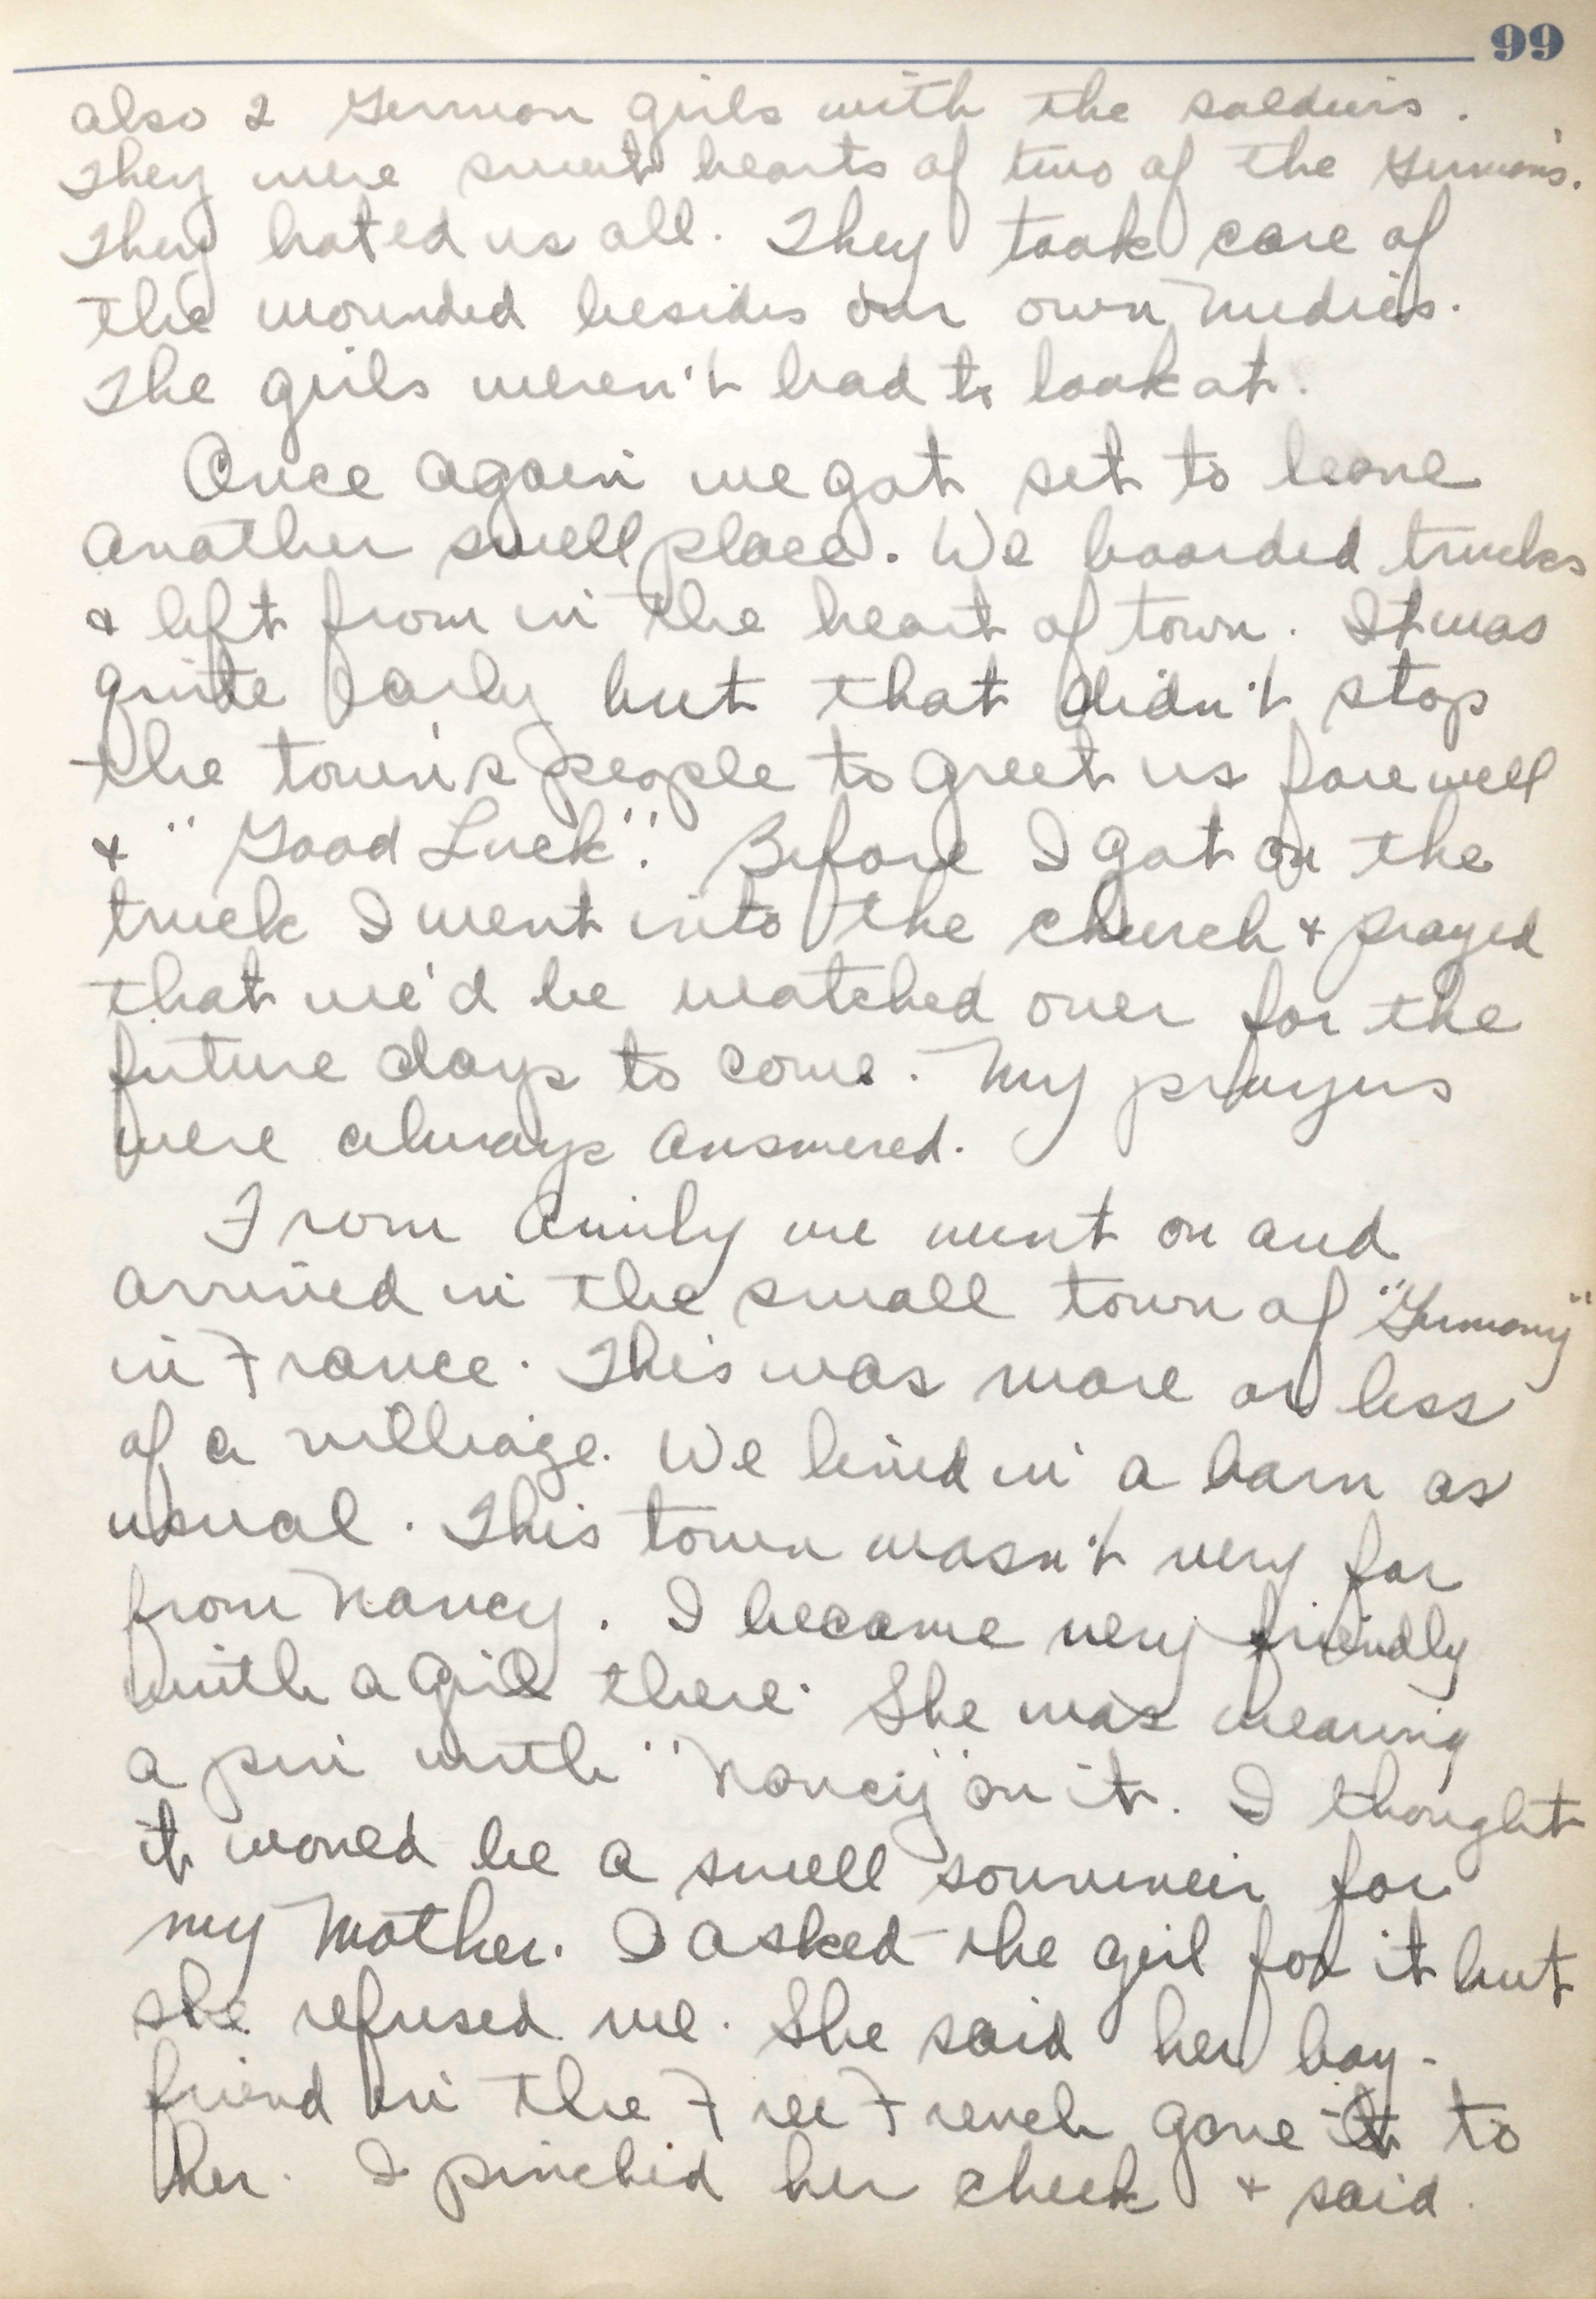 99
also 2 German girls with the soldiers.
They were sweet hearts of two of the German's.
They hated us all. They took care of
the wounded besides our own medics.
The girls weren't bad to look at.
Once again we got set to leave
another swell place. We boarded trucks
& left from in the heart of town. It was
quite early but that didn't stop
the town's people to greet us farewell
& "Good Luck". Before I got on the
truck I went into the church & prayed
that we'd be watched over for the
future days to come. My prayers
were always answered.
From we went on and
arrived in the small town of "Germany"
in France. This was more or less
of a villiage. We lived in a barn as
usual. This town wasn't very far
from Nancy. I became very friendly
with a girl there. She was wearing
a pin with "Nancy" on it. I thought
it would be a swell souvineir for
my Mother. I asked the girl for it but
she refused me. She said her boy-
friend in the Free French gave it to
her. I pinched her cheek & said.